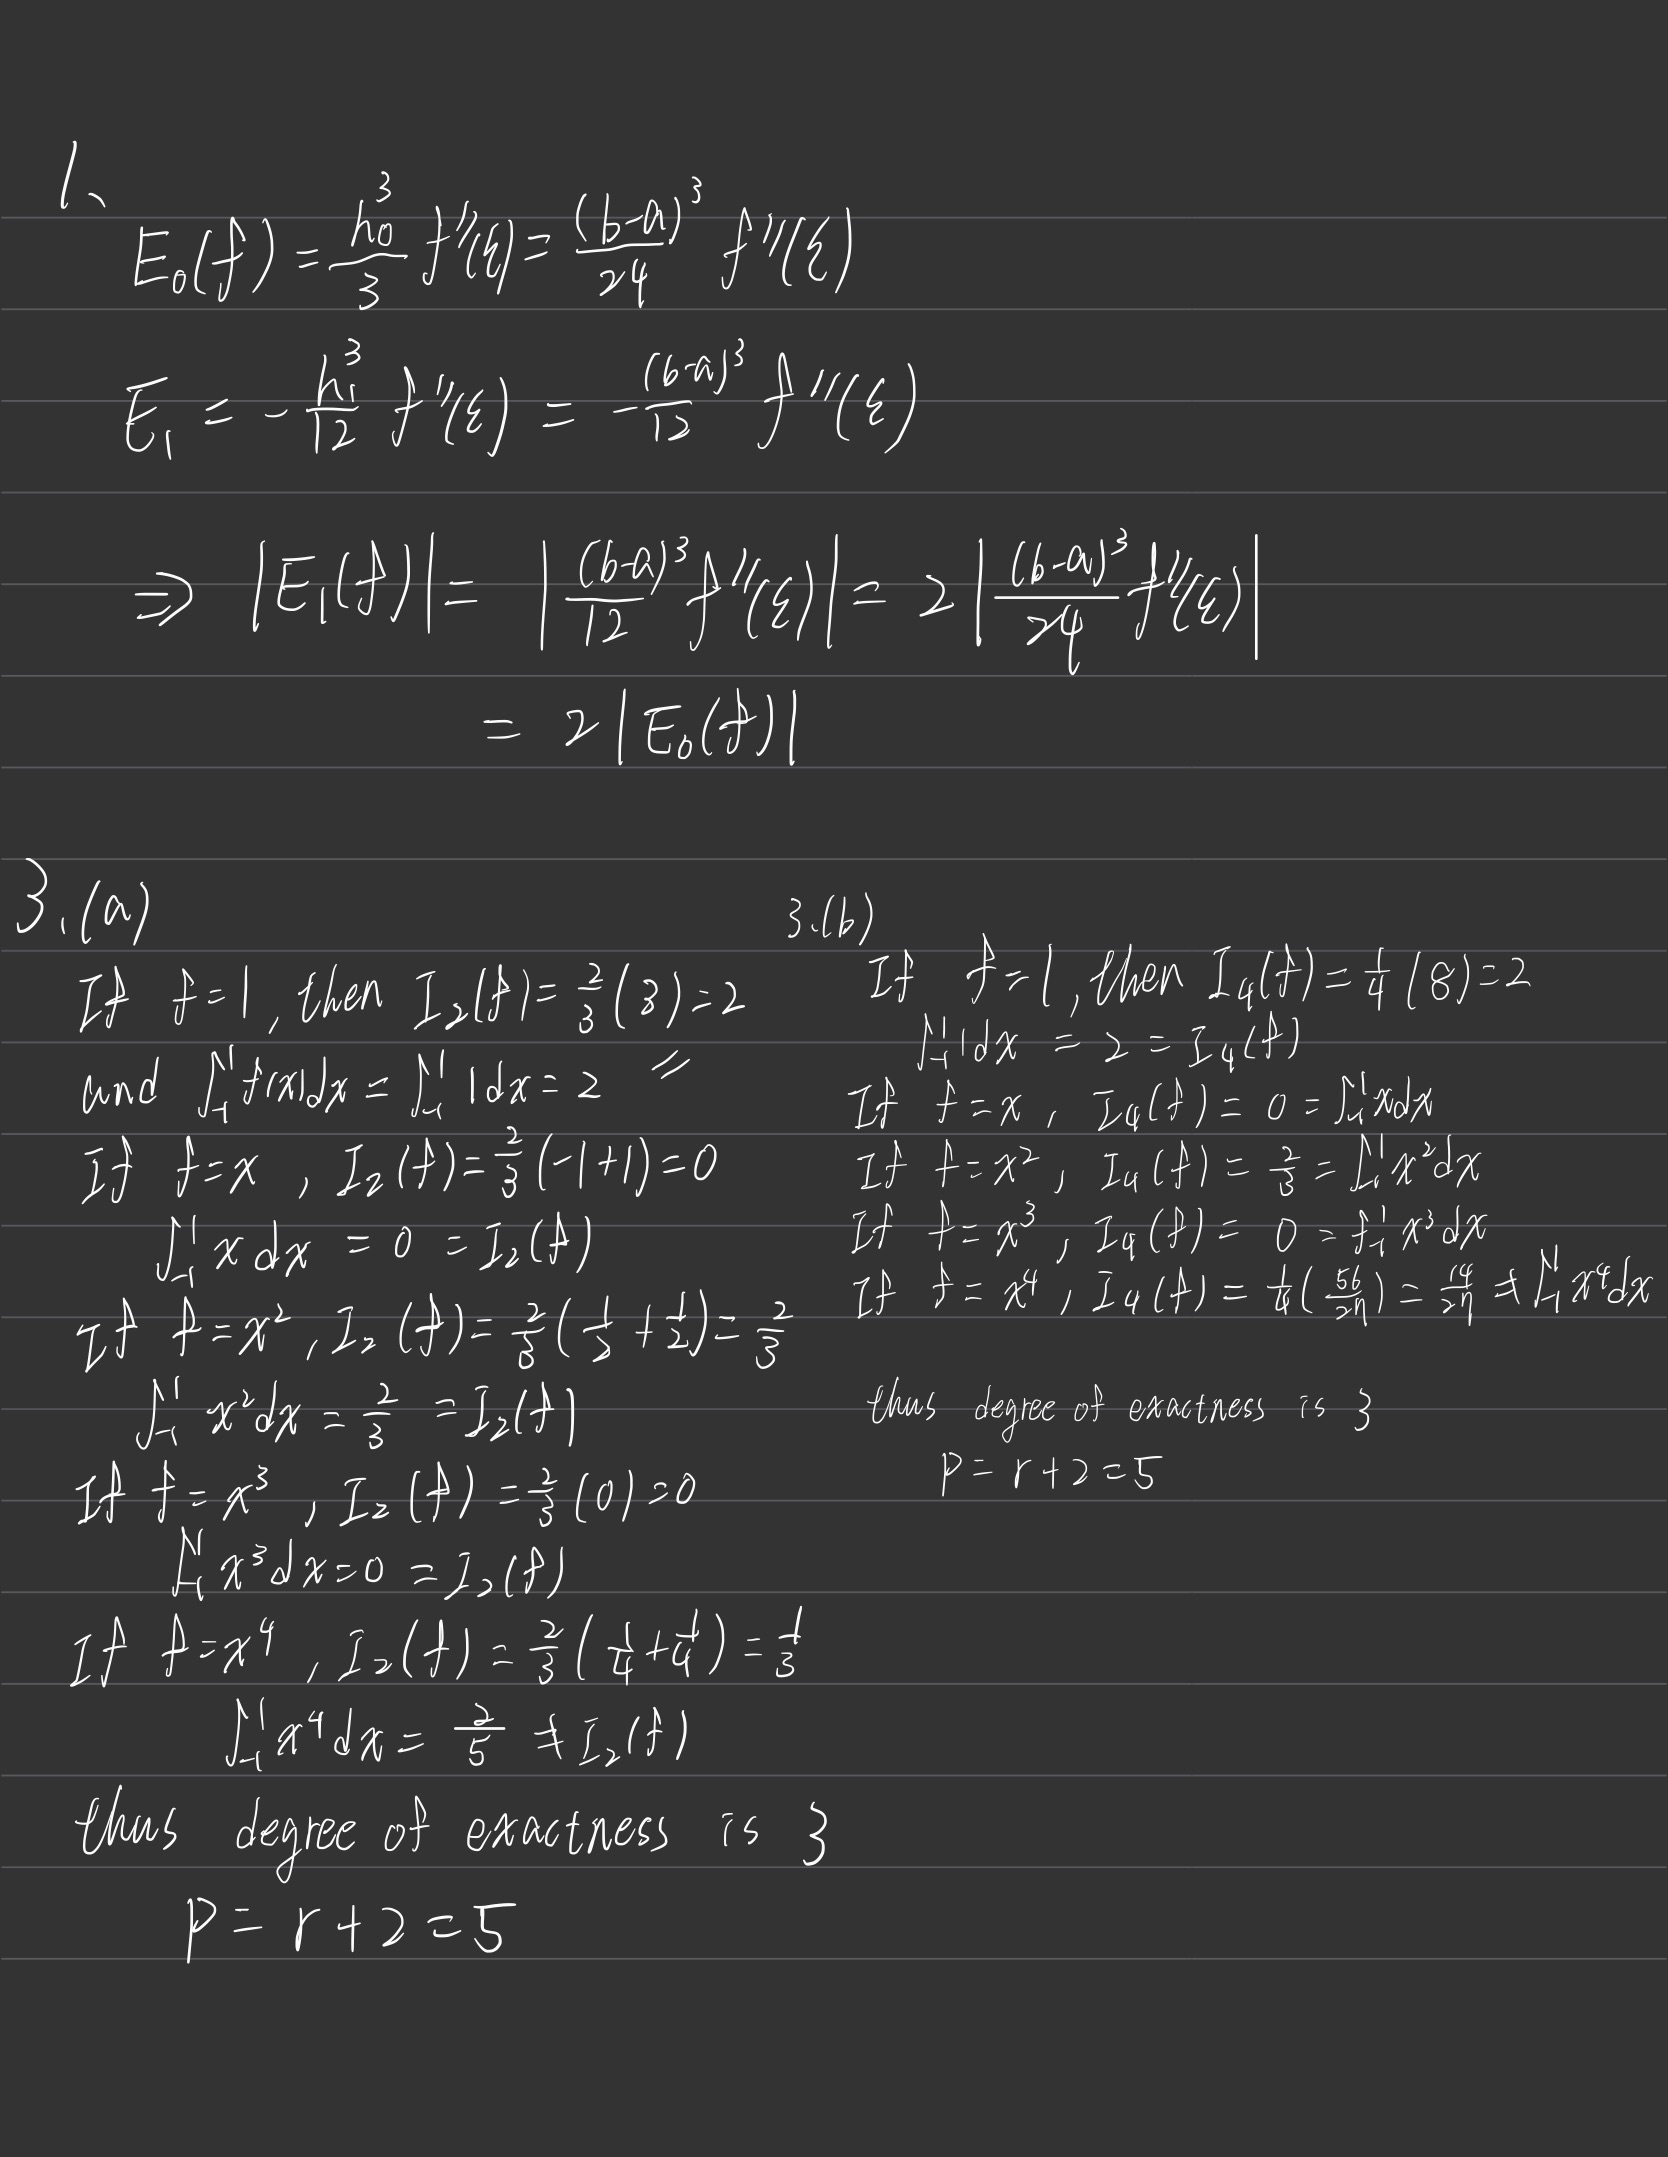 1、
E₀(f) = h₀³/3 f''(ξ) = (b-a)³/24 f''(ξ)
E₁ = - h₁³/12 f''(ξ) = - (b-a)³/12 f''(ξ)
⇒ |E₁(f)| = |(b-a)³/12 f''(ξ)| = 2|(b-a)³/24 f''(ξ)|
= 2|E₀(f)|
3.(a)
If f=1, then I₂(f) = 2/3 (3) = 2
and ∫₋₁¹ f(x)dx = ∫₋₁¹ 1dx = 2 〃
If f=x, I₂(f) = 2/3 (-1+1) = 0
∫₋₁¹ x dx = 0 = I₂(f)
If f=x², I₂(f) = 2/3 (1/2 + 1/2) = 2/3
∫₋₁¹ x² dx = 2/3 = I₂(f)
If f=x³, I₂(f) = 2/3 (0) = 0
∫₋₁¹ x³ dx = 0 = I₂(f)
If f=x⁴, I₂(f) = 2/3 (1/4 + 1/4) = 1/3
∫₋₁¹ x⁴ dx = 2/5 ≠ I₂(f)
thus degree of exactness is 3
P = r+2 = 5
3.(b)
If f=1, then I₄(f) = 1/4 (8) = 2
∫₋₁¹ 1dx = 2 = I₄(f)
If f=x, I₄(f) = 0 = ∫₋₁¹ x dx
If f=x², I₄(f) = 2/3 = ∫₋₁¹ x² dx
If f=x³, I₄(f) = 0 = ∫₋₁¹ x³ dx
If f=x⁴, I₄(f) = 1/4 (56/27) = 14/27 ≠ ∫₋₁¹ x⁴ dx
thus degree of exactness is 3
P = r+2 = 5